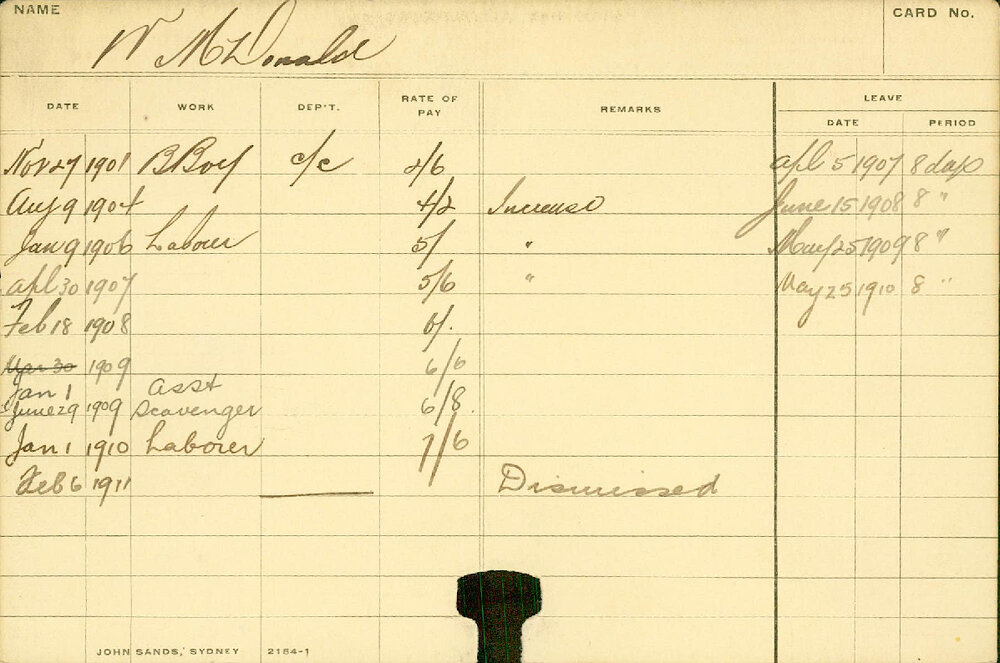 NAME
CARD No.
W McDonald
DATE WORK DEP'T. RATE OF PAY REMARKS LEAVE
DATE PERIOD
Nov 27 1901 B Boy c/c 2/6 Apl 5 1907 8 days
Aug 9 1904 4/2 Increase June 15 1908 8 "
Jan 9 1906 Labourer 5/ " May 25 1909 8 "
Apl 30 1907 5/6 " May 25 1910 8 "
Feb 18 1908 6/.
Mar 30 1909 6/6
Jan 1 Asst
June 29 1909 Scavenger 6/8.
Jan 1 1910 Labourer 7/6
Feb 6 1911 Dismissed
JOHN SANDS, SYDNEY 2154-1